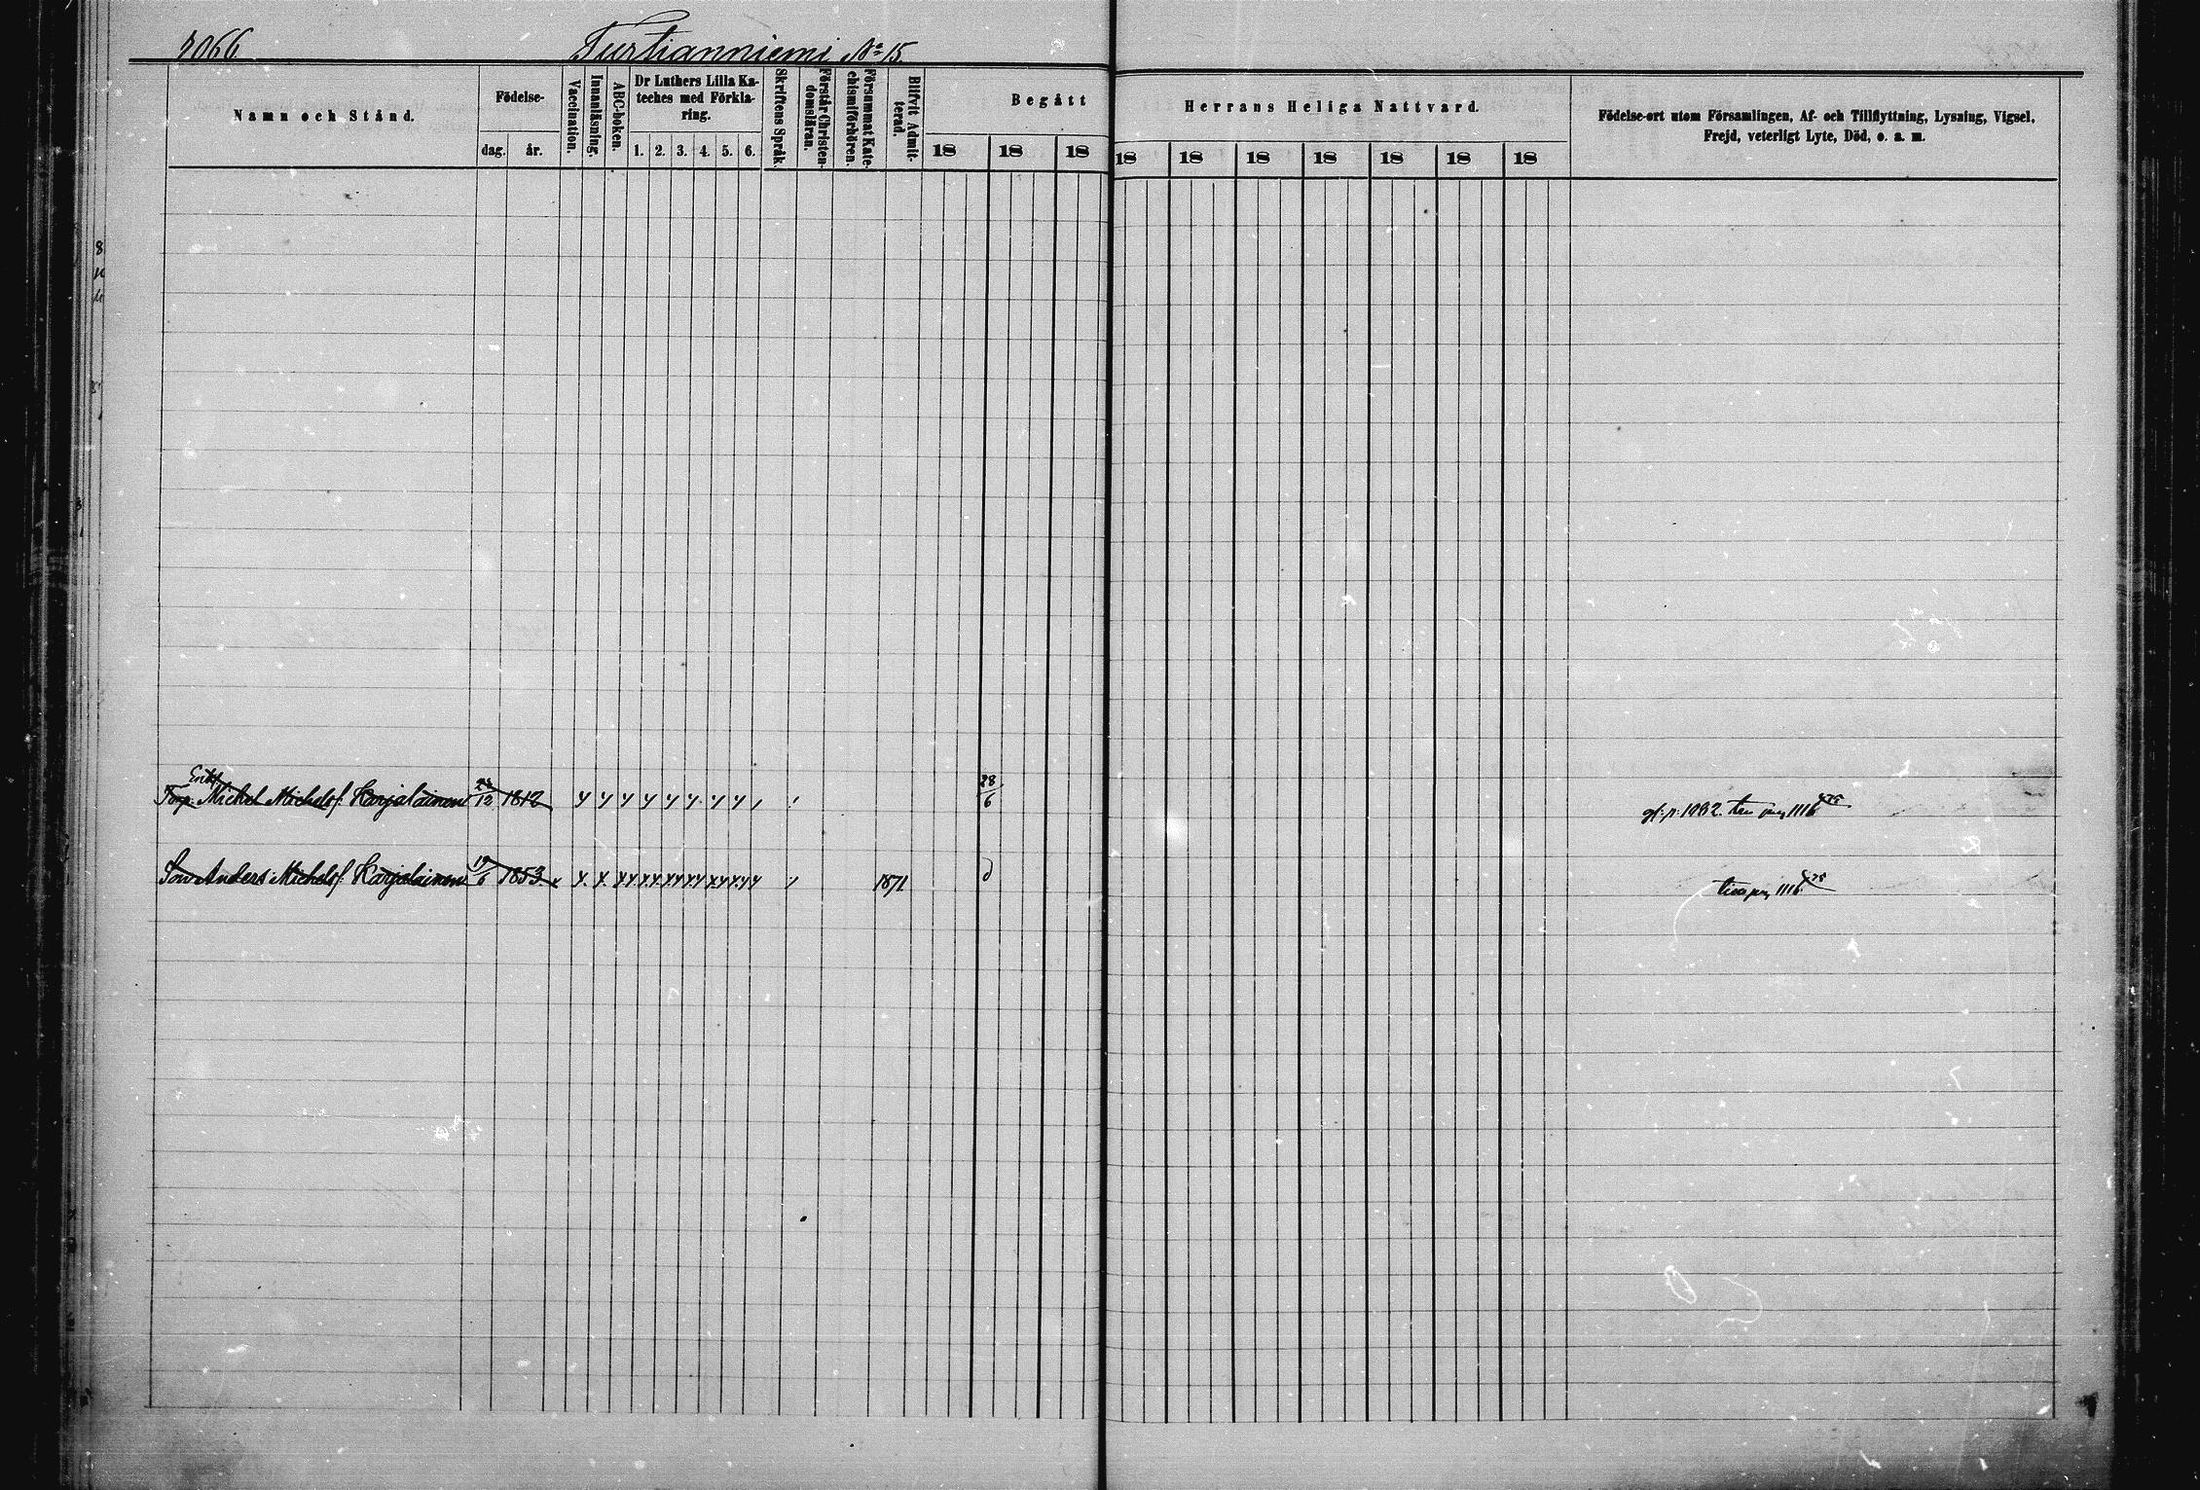 2066 Turtianniemi No 15
Namn och Stånd.
Födelse-
dag. år.
Vaccination.
Innanläsning.
ABC-boken.
Dr Luthers Lilla Ka-
teches med Förkla-
ring.
1. 2. 3. 4. 5. 6.
Skriftens Språk.
Förstår Christen-
domsläran.
Försummat Kate-
chismiförhören.
Blifvit Admit-
terad.
Begått
Herrans Heliga Nattvard.
18 18 18 18 18 18 18 18 18 18
Födelse-ort utom Församlingen, Af- och Tillflyttning, Lysning, Vigsel,
Frejd, veterligt Lyte, Död, o. a. m.
Enkl
Torp. Mickel Michelsf. Karjalainen 12 1812 28/6
Son Anders Michelsf. Karjalainen 19/6 1853 1871